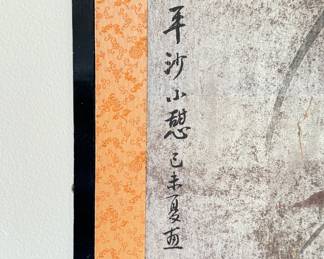 平沙小憇己未夏画